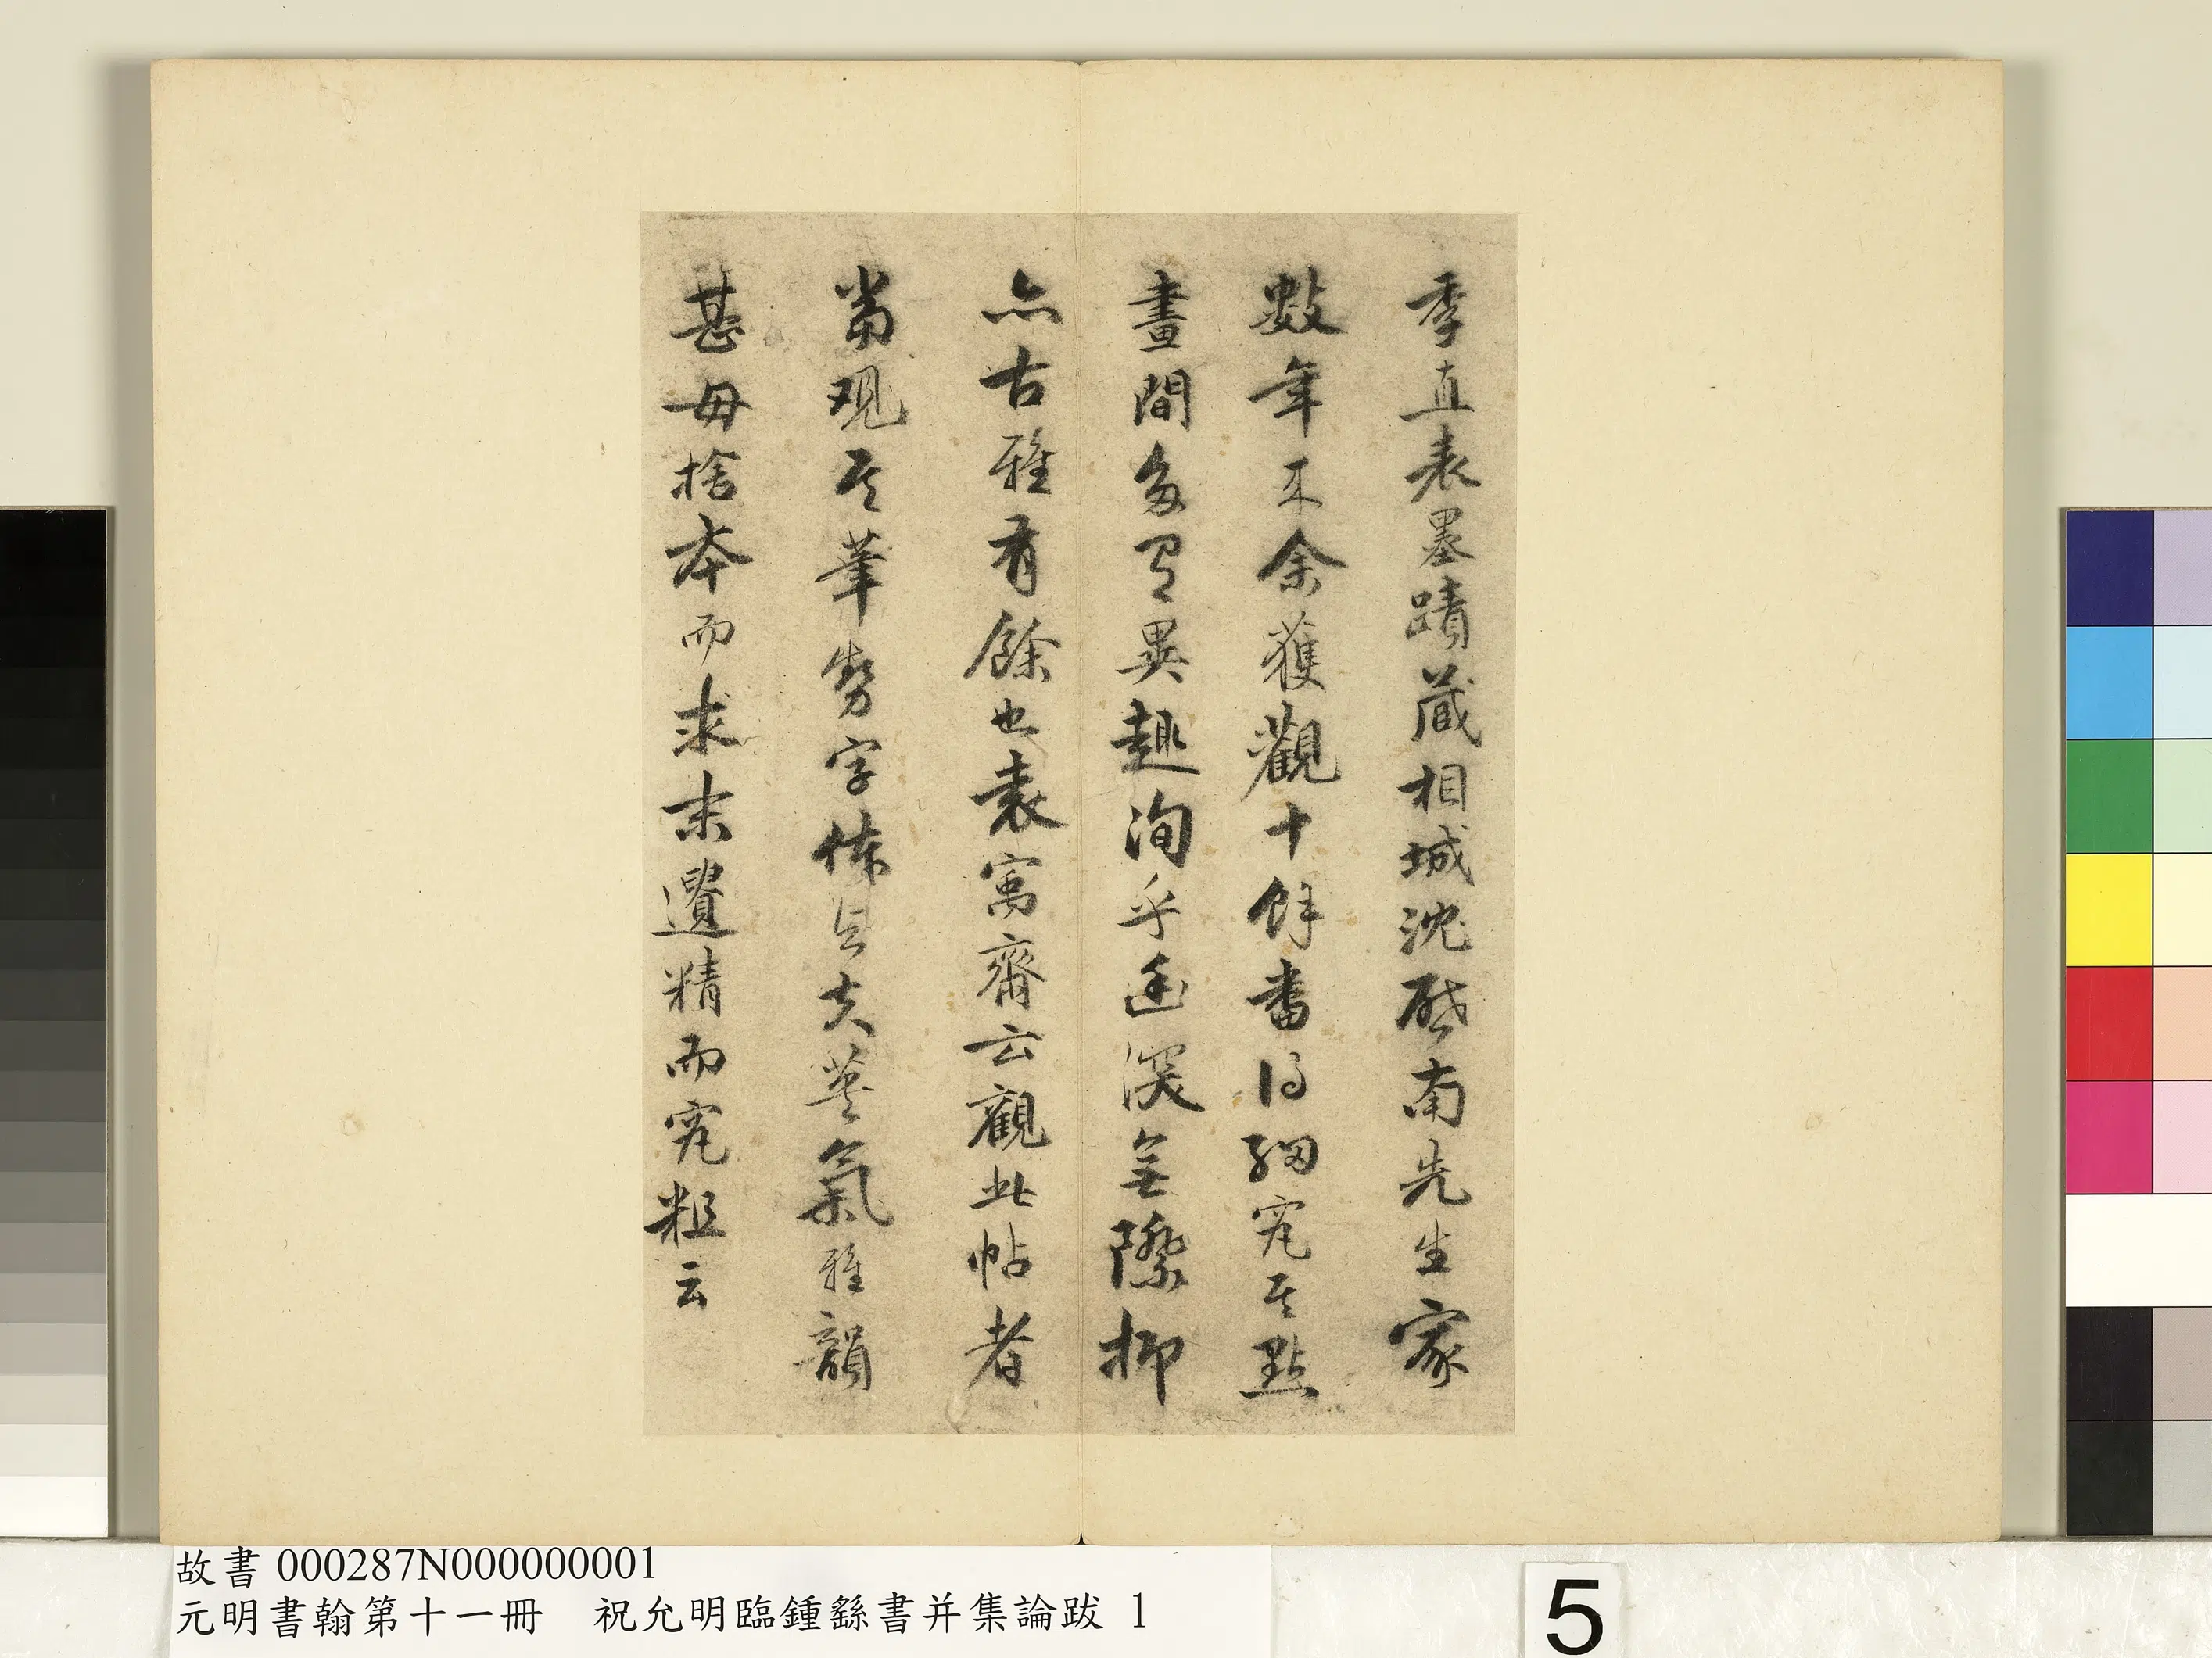 季直表墨蹟藏相城沈啓南先生家
數年來余獲觀十餘番得細究其點
畫間多有異趣洵乎幽深無際抑
亦古雅有餘也袁寓齋云觀此帖者
當观其筆勢字体具大英氣雅韻
甚毋捨本而求末遺精而究粗云
故書000287N000000001
元明書翰第十一冊　祝允明臨鍾繇書并集論跋 1
5